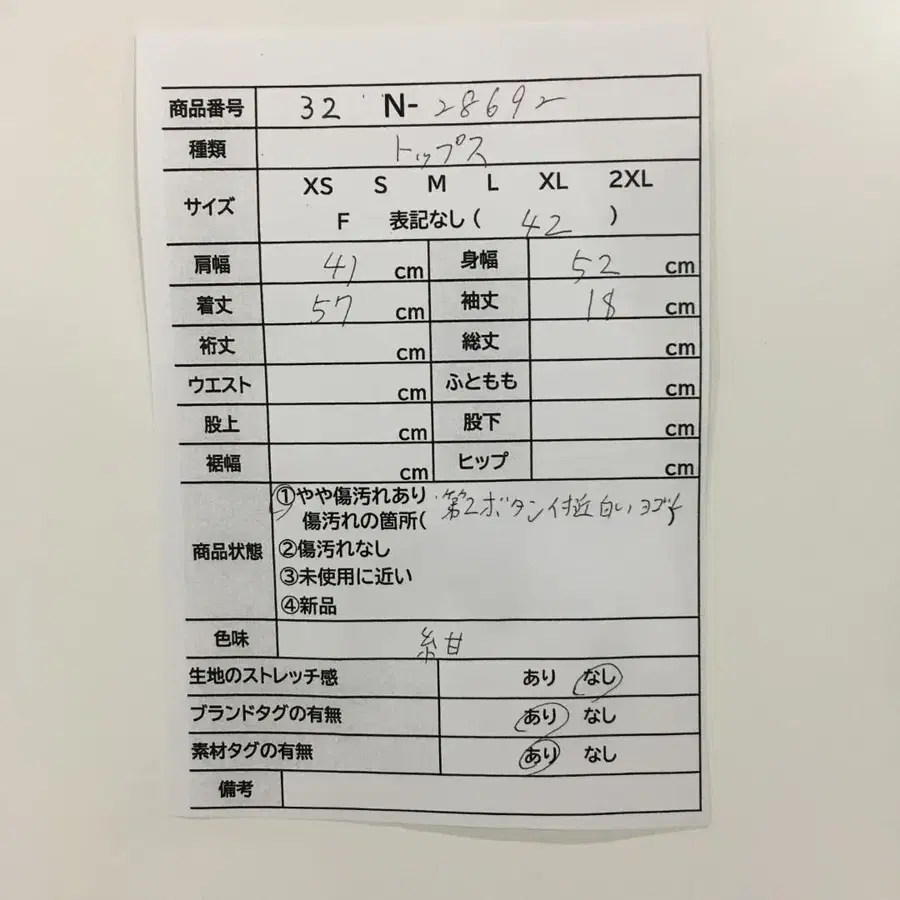 商品番号 32 N-28692
種類 トップス
サイズ XS S M L XL 2XL
F 表記なし ( 42 )
肩幅 41 cm 身幅 52 cm
着丈 57 cm 袖丈 18 cm
裄丈 cm 総丈 cm
ウエスト cm ふともも cm
股上 cm 股下 cm
裾幅 cm ヒップ cm
商品状態 ①やや傷汚れあり
傷汚れの箇所( 第2ボタン付近白いヨゴレ
②傷汚れなし
③未使用に近い
④新品
色味 紺
生地のストレッチ感 あり なし
ブランドタグの有無 あり なし
素材タグの有無 あり なし
備考